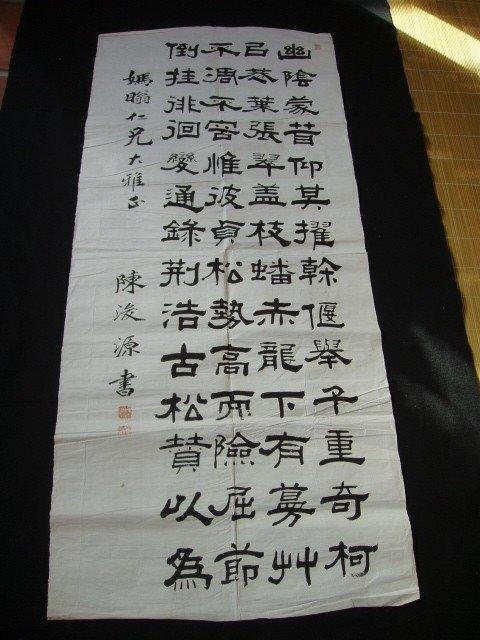 幽陰蒙茸仰其擢榦偃舉千重奇柯
㠯恭葉張翠盖枝蟠赤龍下有蔓艸
不凋不容惟彼貞松勢高而險屈節
倒挂徘徊變通錄荆浩古松贊以為
媽翁仁兄大雅正
陳浚源書